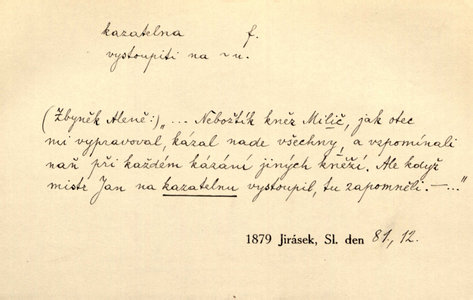 kazatelna f.
vystoupiti na ~u.
(Zbyněk Aleně:) „... Nebožtík kněz Milič, jak otec
mi vypravoval, kázal nade všechny, a vzpomínali
naň při každém kázání jiných kněží. Ale když
mistr Jan na kazatelnu vystoupil, tu zapomněli. — ..."
1879 Jirásek, Sl. den 81, 12.